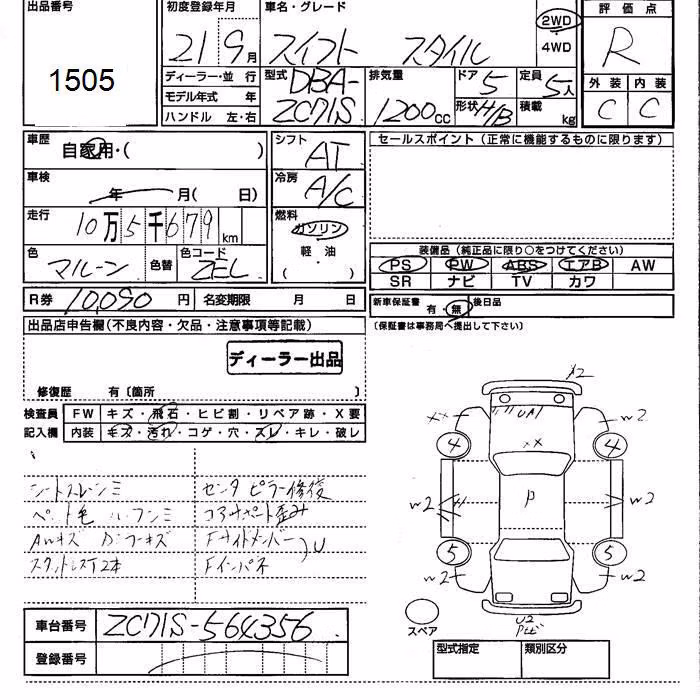 出品番号 初度登録年月 車名・グレード 評価点
1505 21 9月 スイフト スタイル 2WD R
4WD
ディーラー・並行 型式 DBA- 排気量 ドア 5 定員 5人 外装 内装
モデル年式 年 ZC71S 1200cc 形状 H/B 積載 kg C C
ハンドル 左・右
車歴 自家用・( ) シフト AT セールスポイント(正常に機能するものに限ります)
車検 年 月( 日) 冷房 A/C
走行 10万5千679km 燃料 ガソリン
色 マルーン 色替 色コード ZEL 軽・油 装備品(純正品に限り○をつけてください)
( ・ ) PS PW ABS エアB AW
SR ナビ TV カワ
R券 10,090円 名変期限 月 日 新車保証書 有・無 後日品
出品店申告欄(不良内容・欠品・注意事項等記載) (保証書は事務局へ提出して下さい)
ディーラー出品
修復歴 有〔箇所 〕
検査員 FW キズ・飛石・ヒビ割・リペア跡・X要
記入欄 内装 キズ・汚れ・コゲ・穴・スレ・キレ・破レ
シートスレシミ センタピラー修復
ペット毛 ルーフシミ コアサポート歪み
AWキズ Fサイドメンバー U
2本 Fインパネ
A2
XX UA1 W2
4 XX 4
W2 P W2
5 5
W2 W2
U2
スペア
車台番号 ZC71S-564356
登録番号 型式指定 類別区分